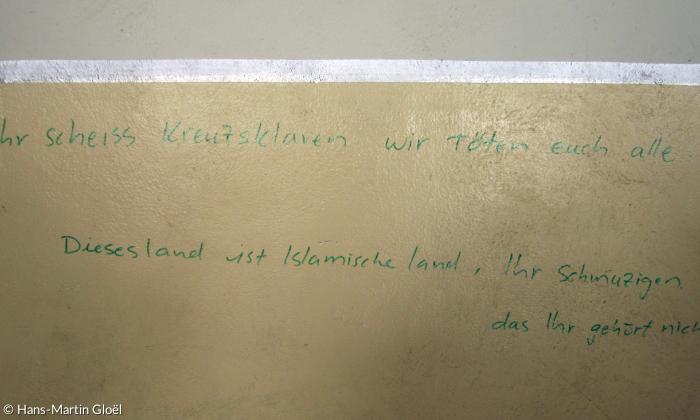 Ihr scheiss Kreuzsklaven wir Töten euch alle
Dieses land ist Islamische land, Ihr Schmuzigen
das Ihr gehört nich
© Hans-Martin Gloël